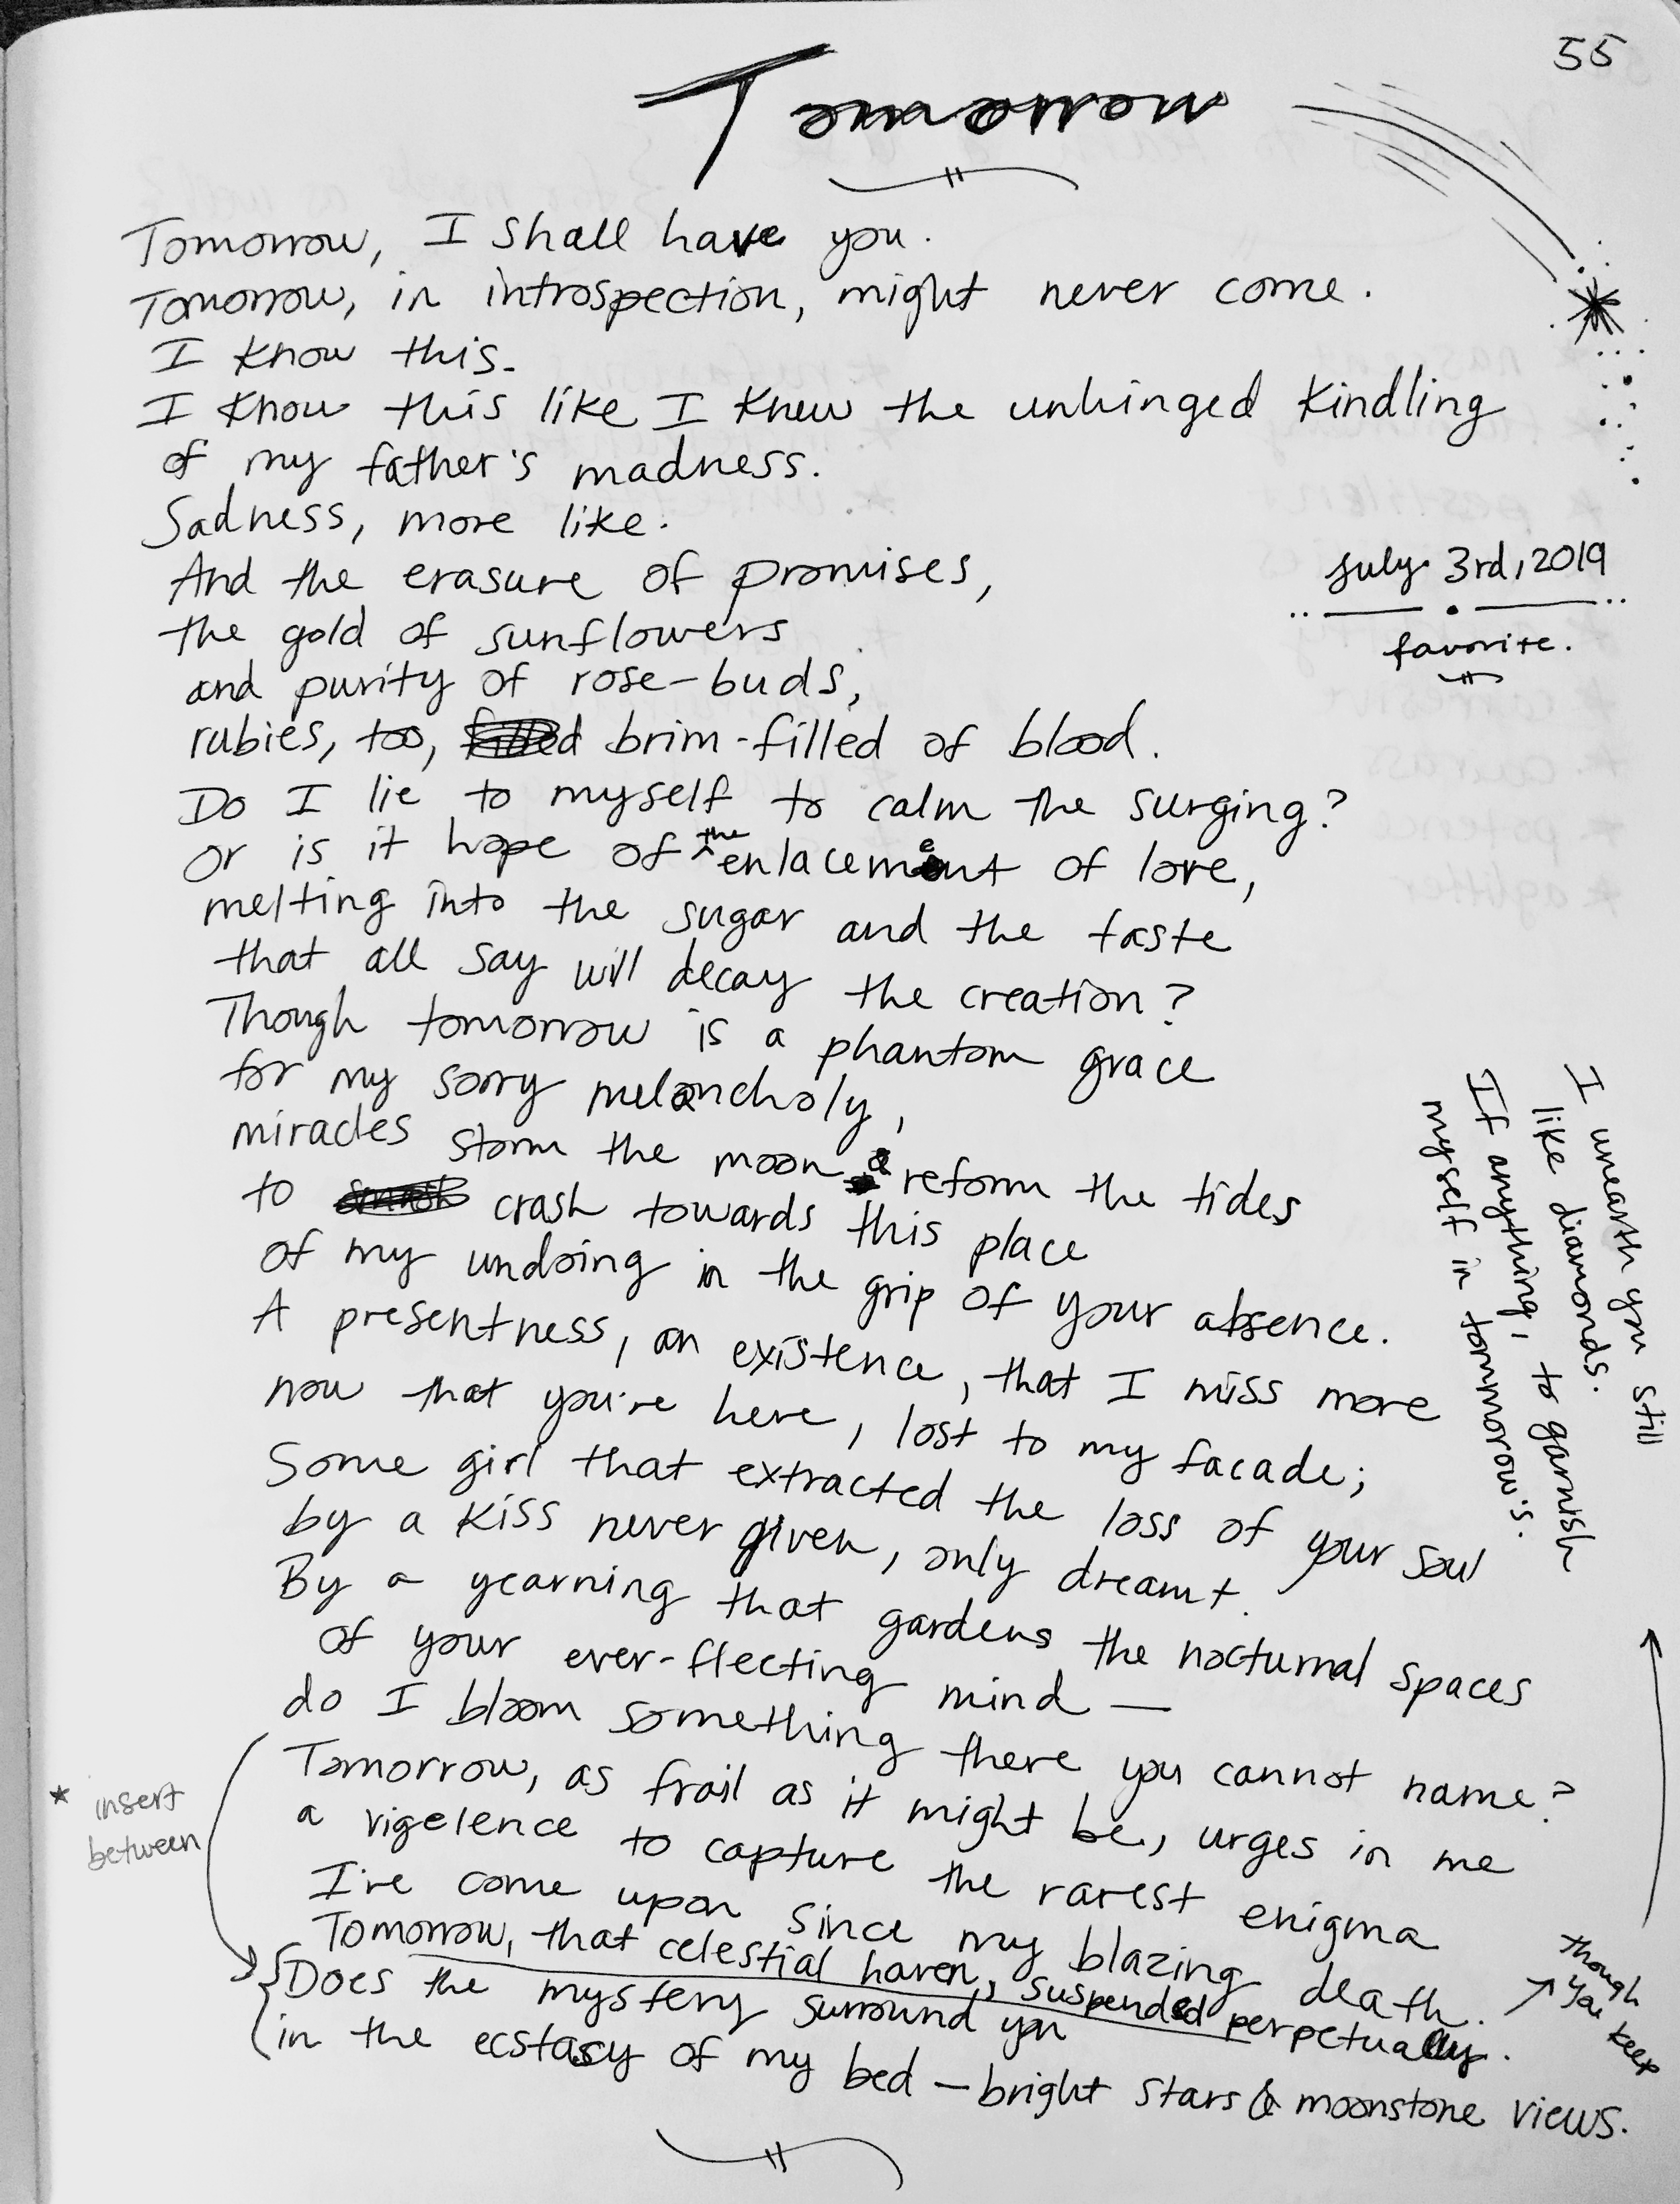 55
Tomorrow
Tomorrow, I shall have you.
Tomorrow, in introspection, might never come.
I know this.
I know this like I knew the unhinged kindling
of my father's madness.
Sadness, more like.
And the erasure of promises,
the gold of sunflowers
and purity of rose-buds,
rubies, too, filled brim-filled of blood.
Do I lie to myself to calm the surging?
Or is it hope of the enlacement of love,
melting into the sugar and the taste
that all say will decay the creation?
Though tomorrow is a phantom grace
for my sorry melancholy,
miracles storm the moon & reform the tides
to smash crash towards this place
of my undoing in the grip of your absence.
A presentness, an existence, that I miss more
now that you're here, lost to my facade;
Some girl that extracted the loss of your soul
by a kiss never given, only dreamt.
By a yearning that gardens the nocturnal spaces
of your ever-flecting mind —
do I bloom something there you cannot name?
Tomorrow, as frail as it might be, urges in me
a vigelence to capture the rarest enigma
I've come upon since my blazing death.
Tomorrow, that celestial haven, suspended perpetually.
{Does the mystery surround you
in the ecstasy of my bed — bright stars & moonstone views.
July 3rd, 2019
favorite.
* insert
between
though
you keep
I unearth you still
like diamonds.
If anything, to garnish
myself in tommorow's.